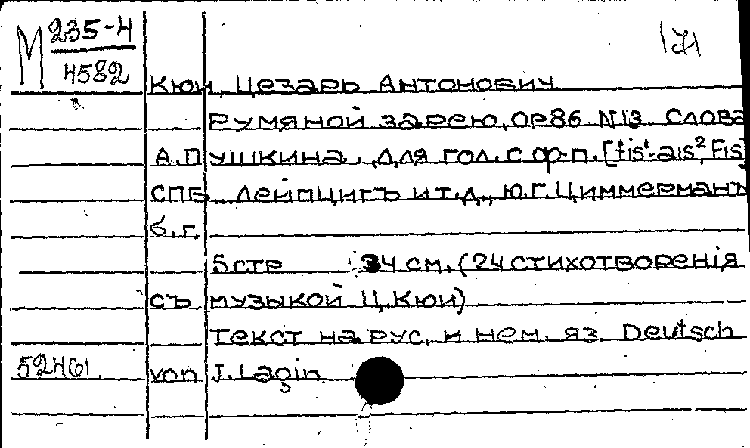 М 235-4
4582
Кюи, Цезарь Антонович
Румяной зарею, ор86 №13. Слова
А.Пушкина. Для гол. с ф-п. [fis¹-ais², Fis]
СПБ. Лейпцигъ и т.д., Ю.Г.Циммерманъ
б.г.
5стр 34 см. (24 стихотворенiя
съ музыкой Ц.Кюи)
Текст на рус. и нем. яз. Deutsch
von J. Lagin